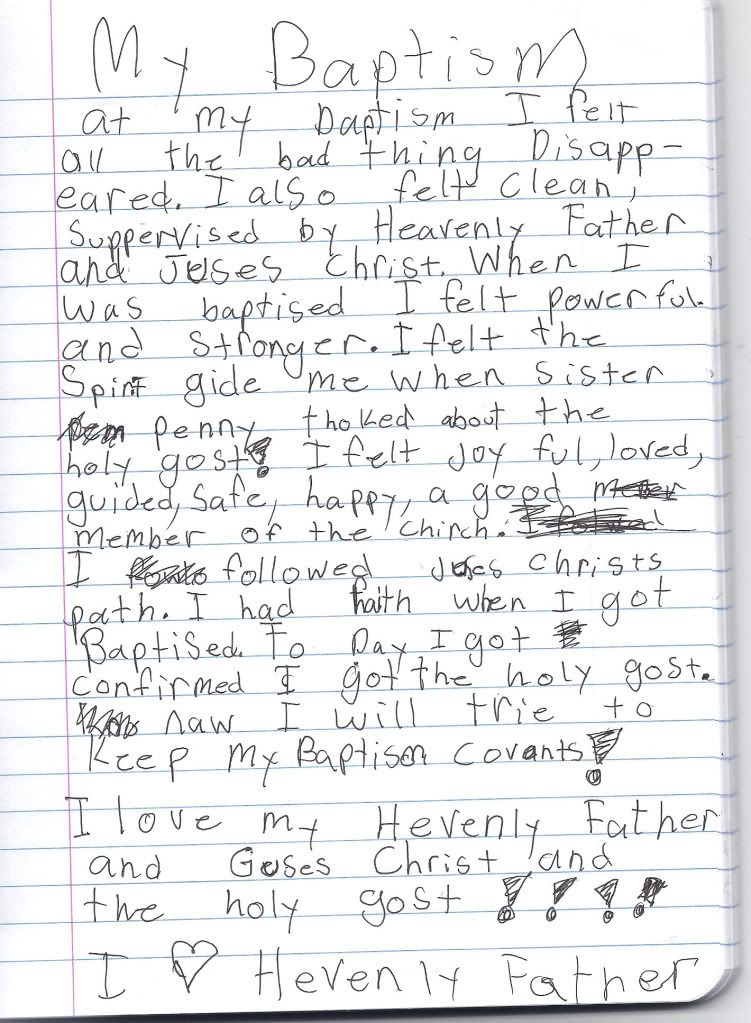 My Baptism
at my Daptism I felt
all the bad thing Disapp-
eared. I also felt clean,
Suppervised by Heavenly Father
and Juses Christ. When I
was baptised I felt powerful.
and Stronger. I felt the
Spirit gide me when Sister
penny tholked about the
holy gost! I felt Joy ful, loved,
guided, Safe, happy, a good
member of the chirch.
I followed Juses Christs
path. I had faith when I got
Baptised. To Day I got
confirmed I got the holy gost.
naw I will trie to
Keep my Baptism Covants!
I love my Hevenly Father
and Guses Christ and
the holy gost ! ! ! !
I ♡ Hevenly Father